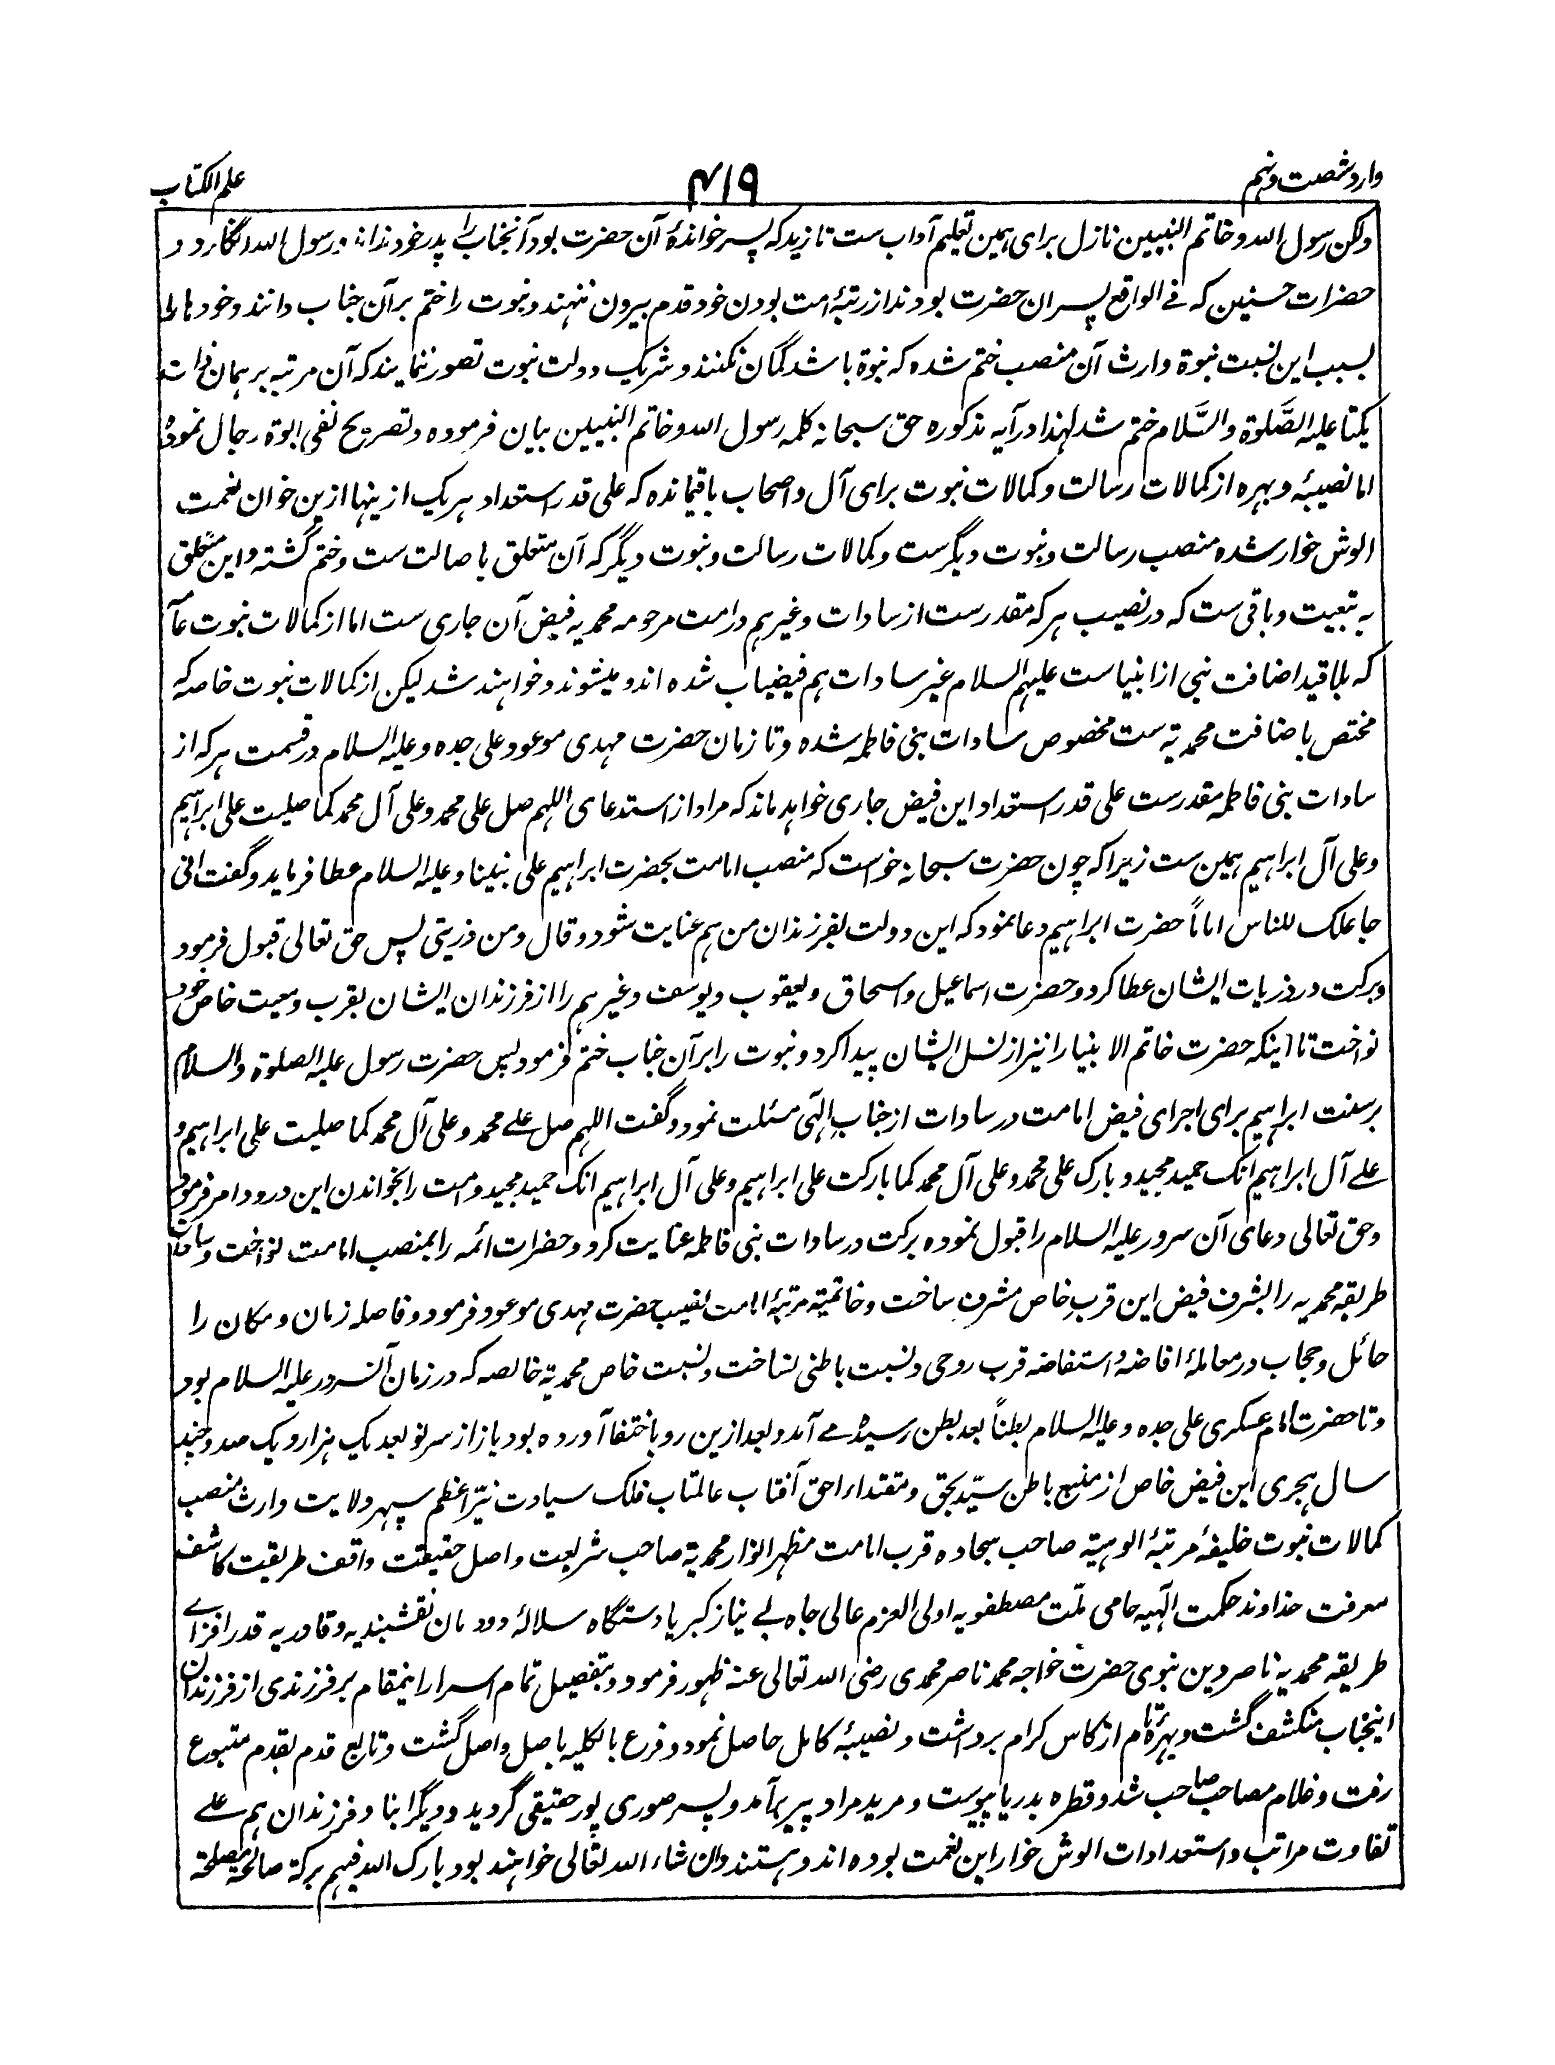 وارد شصت و نہم
۴۱۹
علم الکتاب
ولکن رسول اللہ و خاتم النبیین نازل برای ہمین تعلیم آداب ست تا زید کہ پسر خواندۂ آن حضرت بود آنجناب را پدر خود نداند و رسول اللہ انگارد و
حضرات حسنین کہ فے الواقع پسران حضرت بودند از رتبۂ امت بودن خود قدم بیرون ننہند و نبوت را ختم بر آن جناب دانند و خودہا را
بسبب این نسبت نبوۃ وارث آن منصب ختم شدہ کہ نبوۃ باشد گمان نکنند و شریک دولت نبوت تصور ننمایند کہ آن مرتبہ بر ہمان ذات
یکتا علیہ الصَّلوۃ والسَّلام ختم شد لہذا در آیہ مذکورہ حق سبحانہ کلمہ رسول اللہ و خاتم النبیین بیان فرمودہ و تصریح نفی ابوۃ رجال نمودہ
اما نصیبہ و بہرہ از کمالات رسالت و کمالات نبوت برای آل و اصحاب باقیماندہ کہ علی قدر استعداد ہر یک از ینہا ازین خوان نعمت
الوش خوار شدہ منصب رسالت و نبوت دیگر ست و کمالات رسالت و نبوت دیگر کہ آن متعلق باصالت ست و ختم گشتہ و این متعلق
بہ تبعیت و باقی ست کہ در نصیب ہر کہ مقدر ست از سادات و غیرہم در امت مرحومہ محمدیہ فیض آن جاری ست اما از کمالات نبوت عامّہ
کہ بلا قید اضافت نبی از انبیاست علیہم السلام غیر سادات ہم فیضیاب شدہ اند و میشوند و خواہند شد لیکن از کمالات نبوت خاصہ کہ
مختص باضافت محمدیّہ ست مخصوص سادات بنی فاطمہ شدہ و تا زمان حضرت مہدی موعود علی جدہ و علیہ السلام در قسمت ہر کہ از
سادات بنی فاطمہ مقدرست علی قدر استعداد این فیض جاری خواہد ماند کہ مراد از استدعای اللہم صل علی محمد و علی آل محمد کما صلیت علی ابراہیم
و علی آل ابراہیم ہمین ست زیرا کہ چون حضرت سبحانہ خواست کہ منصب امامت بحضرت ابراہیم علی نبینا و علیہ السلام عطا فرماید و گفت انی
جاعلک للناس اماماً حضرت ابراہیم دعا نمود کہ این دولت بفرزندان من ہم عنایت شود و قال و من ذریتی پس حق تعالی قبول فرمود
و برکت در ذریات ایشان عطا کرد و حضرت اسماعیل و اسحاق و یعقوب و یوسف و غیرہم را از فرزندان ایشان بقرب و معیت خاص خود
نواخت تا اینکہ حضرت خاتم الانبیا را نیز از نسل ایشان پیدا کرد و نبوت را بر آن جناب ختم فرمود پس حضرت رسول علیہ الصلوۃ والسلام
بر سنت ابراہیم برای اجرای فیض امامت در سادات از جناب الٰہی مسئلت نمود و گفت اللہم صل علے محمد و علی آل محمد کما صلیت علی ابراہیم و
علے آل ابراہیم انک حمید مجید و بارک علی محمد و علی آل محمد کما بارکت علی ابراہیم و علی آل ابراہیم انک حمید مجید و امت را بخواندن این درود امر فرمود
و حق تعالی دعای آن سرور علیہ السلام را قبول نمودہ برکت در سادات بنی فاطمہ عنایت کرد و حضرات ائمہ را بمنصب امامت نواخت و سادات
طریقہ محمدیہ را بشرف فیض این قرب خاص مشرف ساخت و خاتمیۃ مرتبۂ امامت نصیب حضرت مہدی موعود فرمود و فاصلہ زمان و مکان را
حائل و حجاب در معاملۂ افاضہ و استفاضہ قرب روحی و نسبت باطنی نساخت و نسبت خاص محمدیّہ خالصہ کہ در زمان آنسرور علیہ السلام بود
و تا حضرت امام عسکری علی جدہ و علیہ السلام بطناً بعد بطن رسیدہ مے آمد و بعد ازین رو باختفا آوردہ بود باز از سر نو بعد یک ہزار و یک صد و چند
سال ہجری این فیض خاص از منبع باطن سیّد بحق و مقتداء احق آفتاب عالمتاب فلک سیادت نیّر اعظم سپہر ولایت وارث منصب
کمالات نبوت خلیفۂ مرتبۂ الوہیّہ صاحب سجادہ قرب امامت مظہر انوار محمدیّہ صاحب شریعت واصل حقیقت واقف طریقت کاشف
معرفت خداوند حکمت الٰہیہ حامی ملّت مصطفویہ اولی العزم عالی جاہ بے نیاز کبریا دستگاہ سلالۂ دودمان نقشبندیہ و قادریہ قدر افزاے
طریقہ محمدیہ ناصر دین نبوی حضرت خواجہ محمد ناصر محمدی رضی اللہ تعالی عنہ ظہور فرمود و بتفصیل تمام اسرار اینمقام بر فرزندی از فرزندان
اینجناب منکشف گشت و بہرۂ تام از کاس کرام برداشت و نصیبۂ کامل حاصل نمود و فرع بالکلیہ باصل واصل گشت و تابع قدم بقدم متبوع
رفت و غلام مصاحب صاحب شد و قطرہ بدریا پیوست و مرید مراد پیر برآمد و پسر صوری پور حقیقی گردید و دیگر ابنا و فرزندان ہم علے
تفاوت مراتب و استعدادات الوش خوار این نعمت بودہ اند و ہستند و ان شاء اللہ تعالی خواہند بود بارک اللہ فیہم برکۃ صالحۃ مصلحۃ